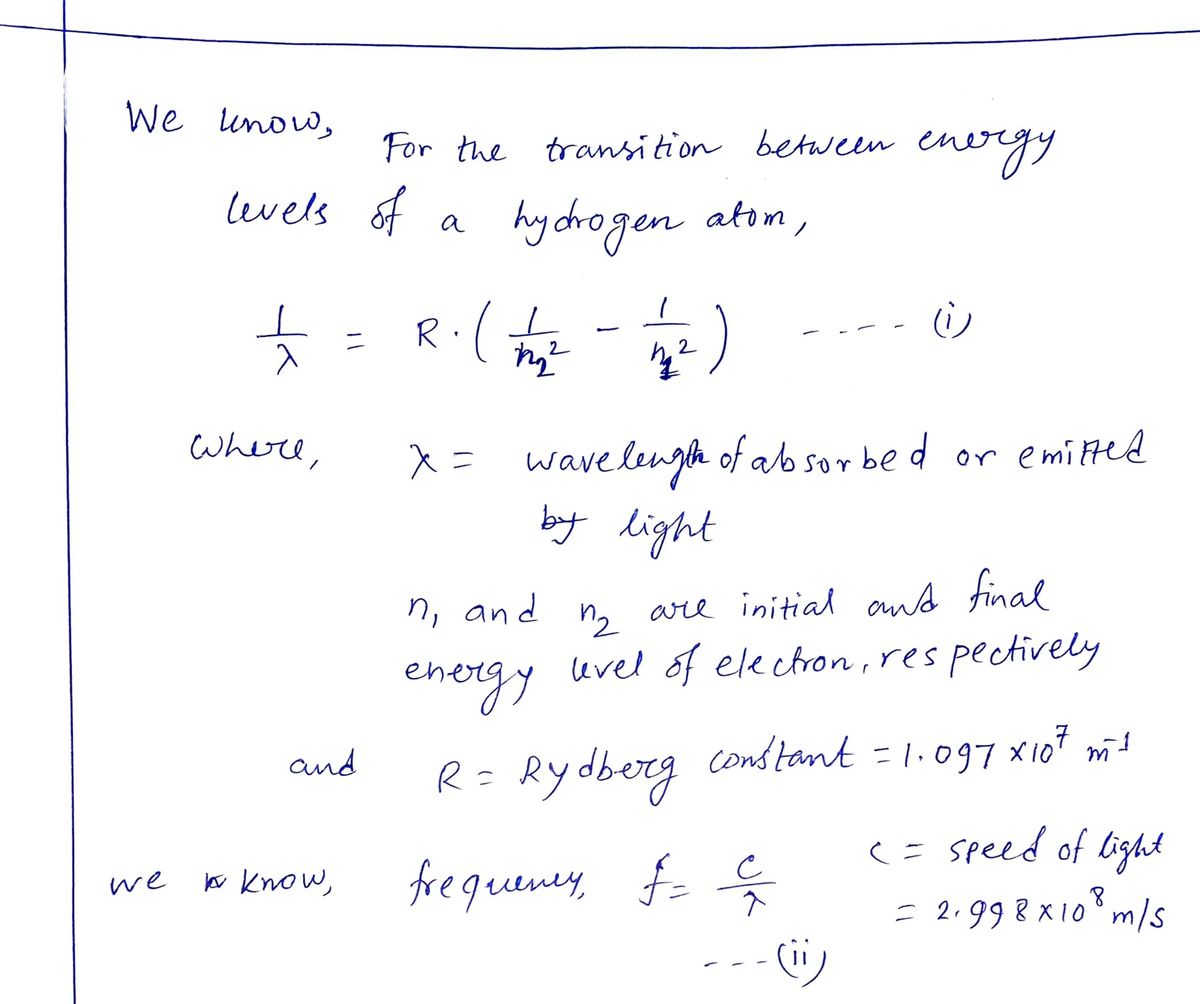 We know,
For the transition between energy
levels of a hydrogen atom,
1/λ = R·(1/n₂² - 1/n₁²) ---- (i)
where, λ = wavelength of absorbed or emitted
by light
n₁ and n₂ are initial and final
energy level of electron, respectively
and R = Rydberg constant = 1.097 ×10⁷ m⁻¹
we know, frequency, f = c/λ ---(ii)
c = speed of light
= 2.998 × 10⁸ m/s